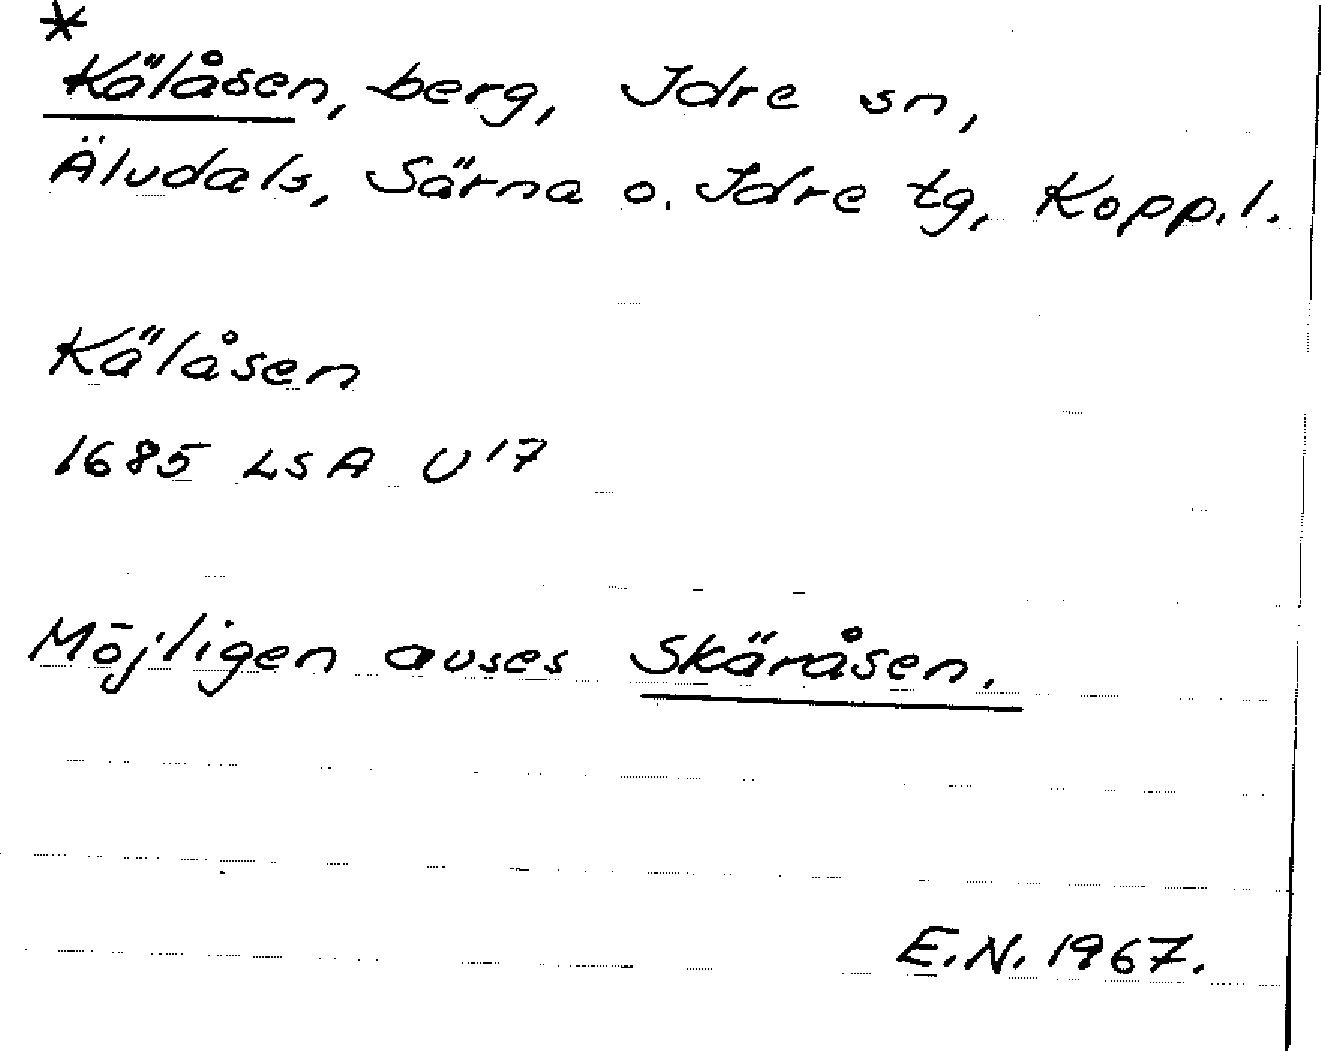 *
Kälåsen, berg, Idre sn,
Älvdals, Särna o. Idre tg, Kopp. l.
Kälåsen
1685 LSA U'7
Möjligen avses Skäråsen.
E.N. 1967.